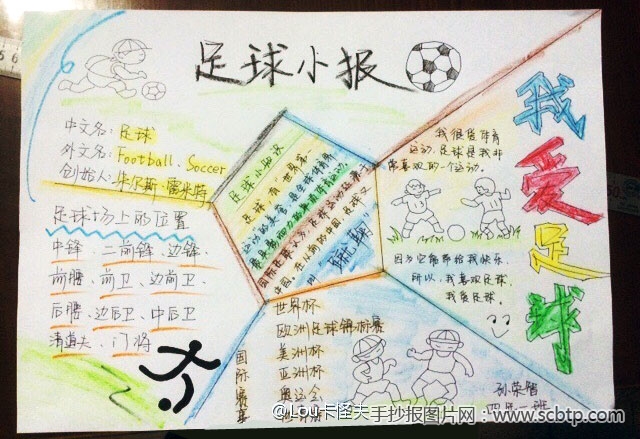 足球小报
中文名:足球
外文名:Football、Soccer
创始人:华尔斯·雷米特
足球场上的位置
中锋、二前锋、边锋、
前腰、前卫、边前卫、
后腰、边后卫、中后卫
清道夫、门将
足球小知识
足球,有“世界第一
国际足球
“蹴鞠”
我很爱体育
运动,足球是我非
常喜欢的一个运动。
因为它能带给我快乐,
所以,我喜欢足球,
我爱足球。
我爱足球
国际赛事
世界杯
欧洲足球锦标赛
美洲杯
亚洲杯
奥运会
孙荣智
四年一班
@Lou卡怪夫手抄报图片网:www.scbtp.com